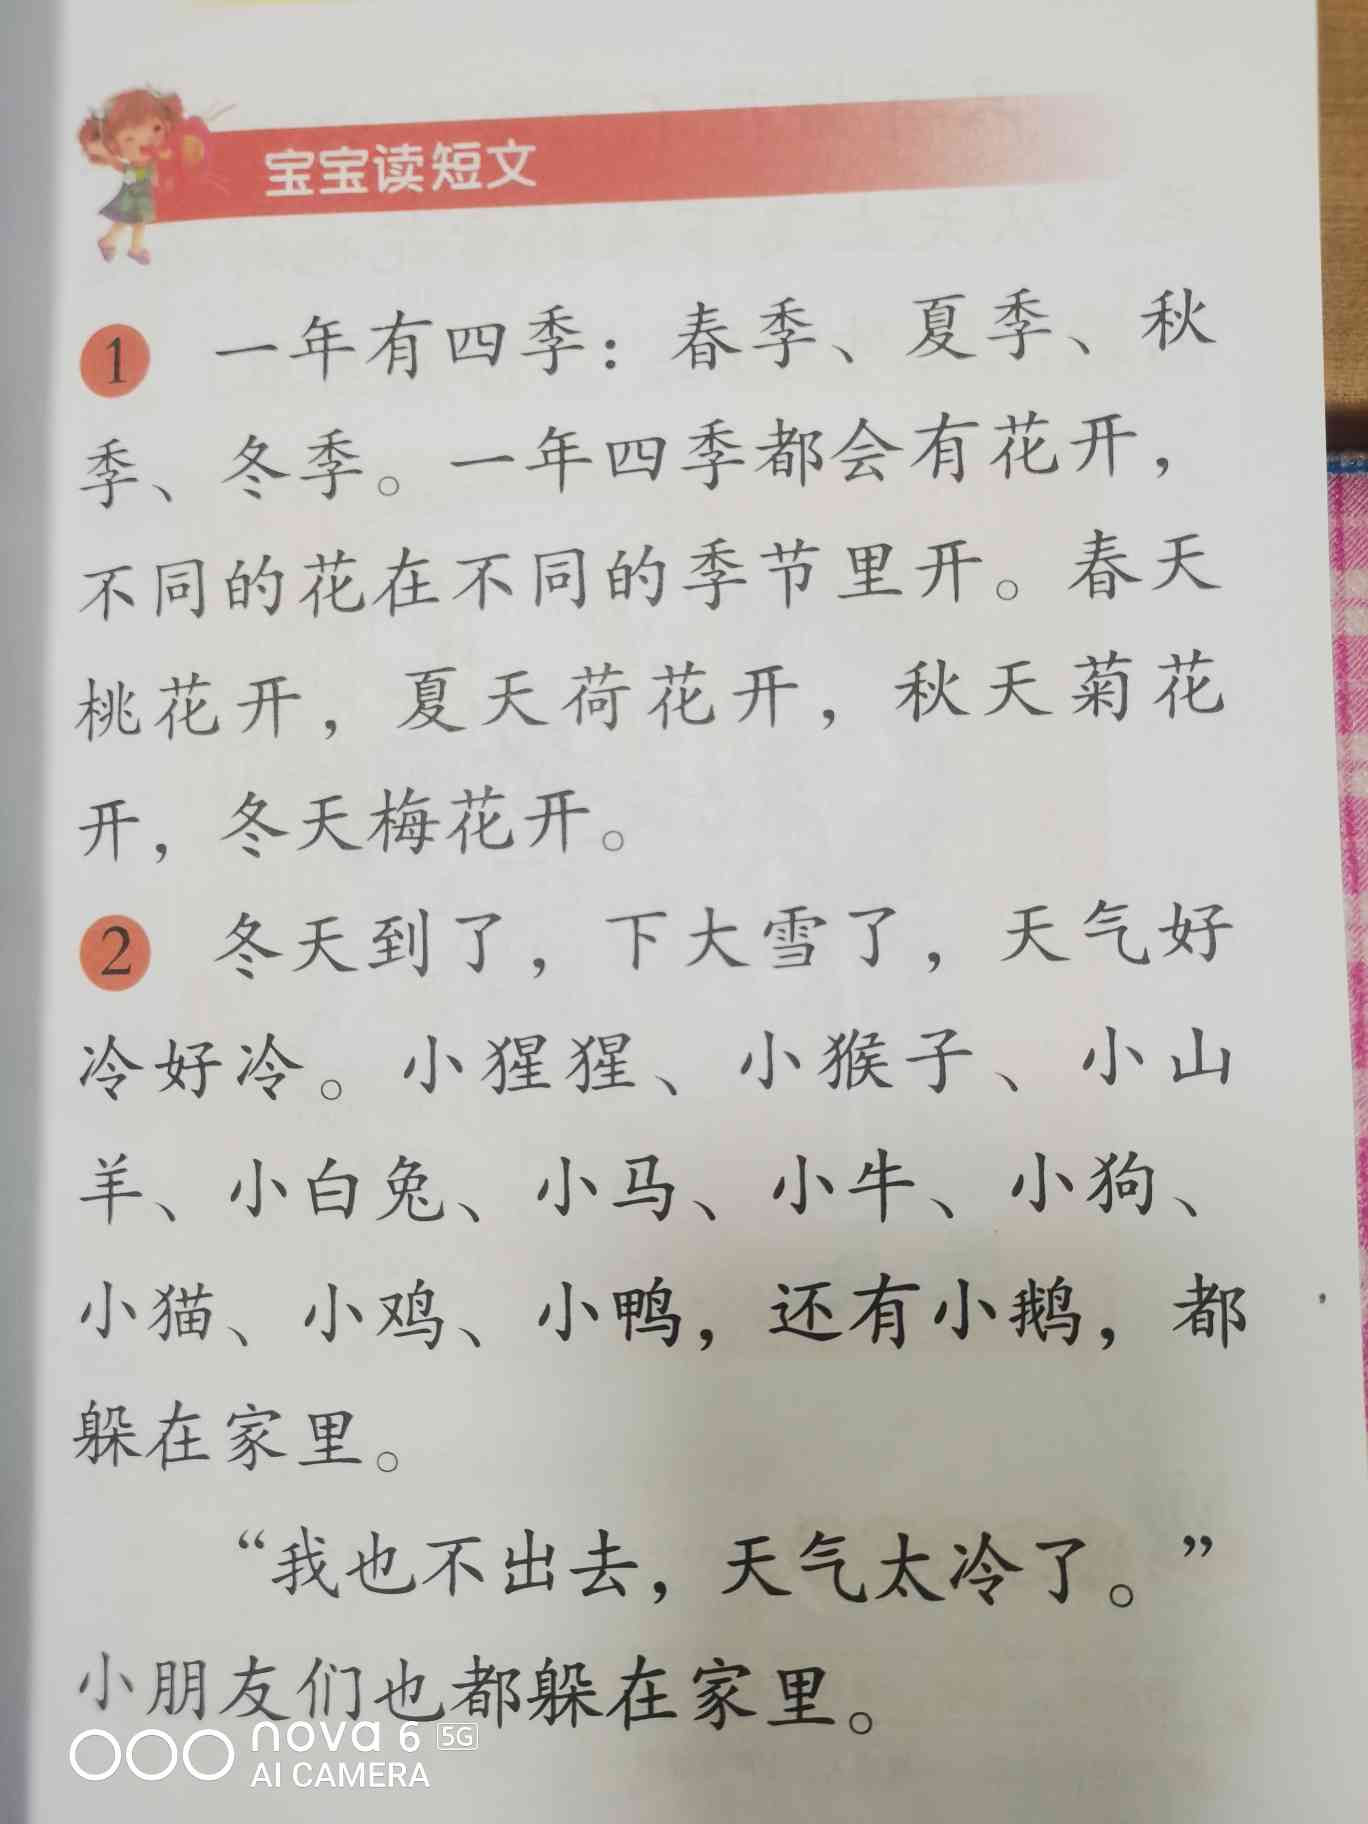 宝宝读短文
1 一年有四季：春季、夏季、秋
季、冬季。一年四季都会有花开，
不同的花在不同的季节里开。春天
桃花开，夏天荷花开，秋天菊花
开，冬天梅花开。
2 冬天到了，下大雪了，天气好
冷好冷。小猩猩、小猴子、小山
羊、小白兔、小马、小牛、小狗、
小猫、小鸡、小鸭，还有小鹅，都
躲在家里。
“我也不出去，天气太冷了。”
小朋友们也都躲在家里。
nova 6 5G
AI CAMERA